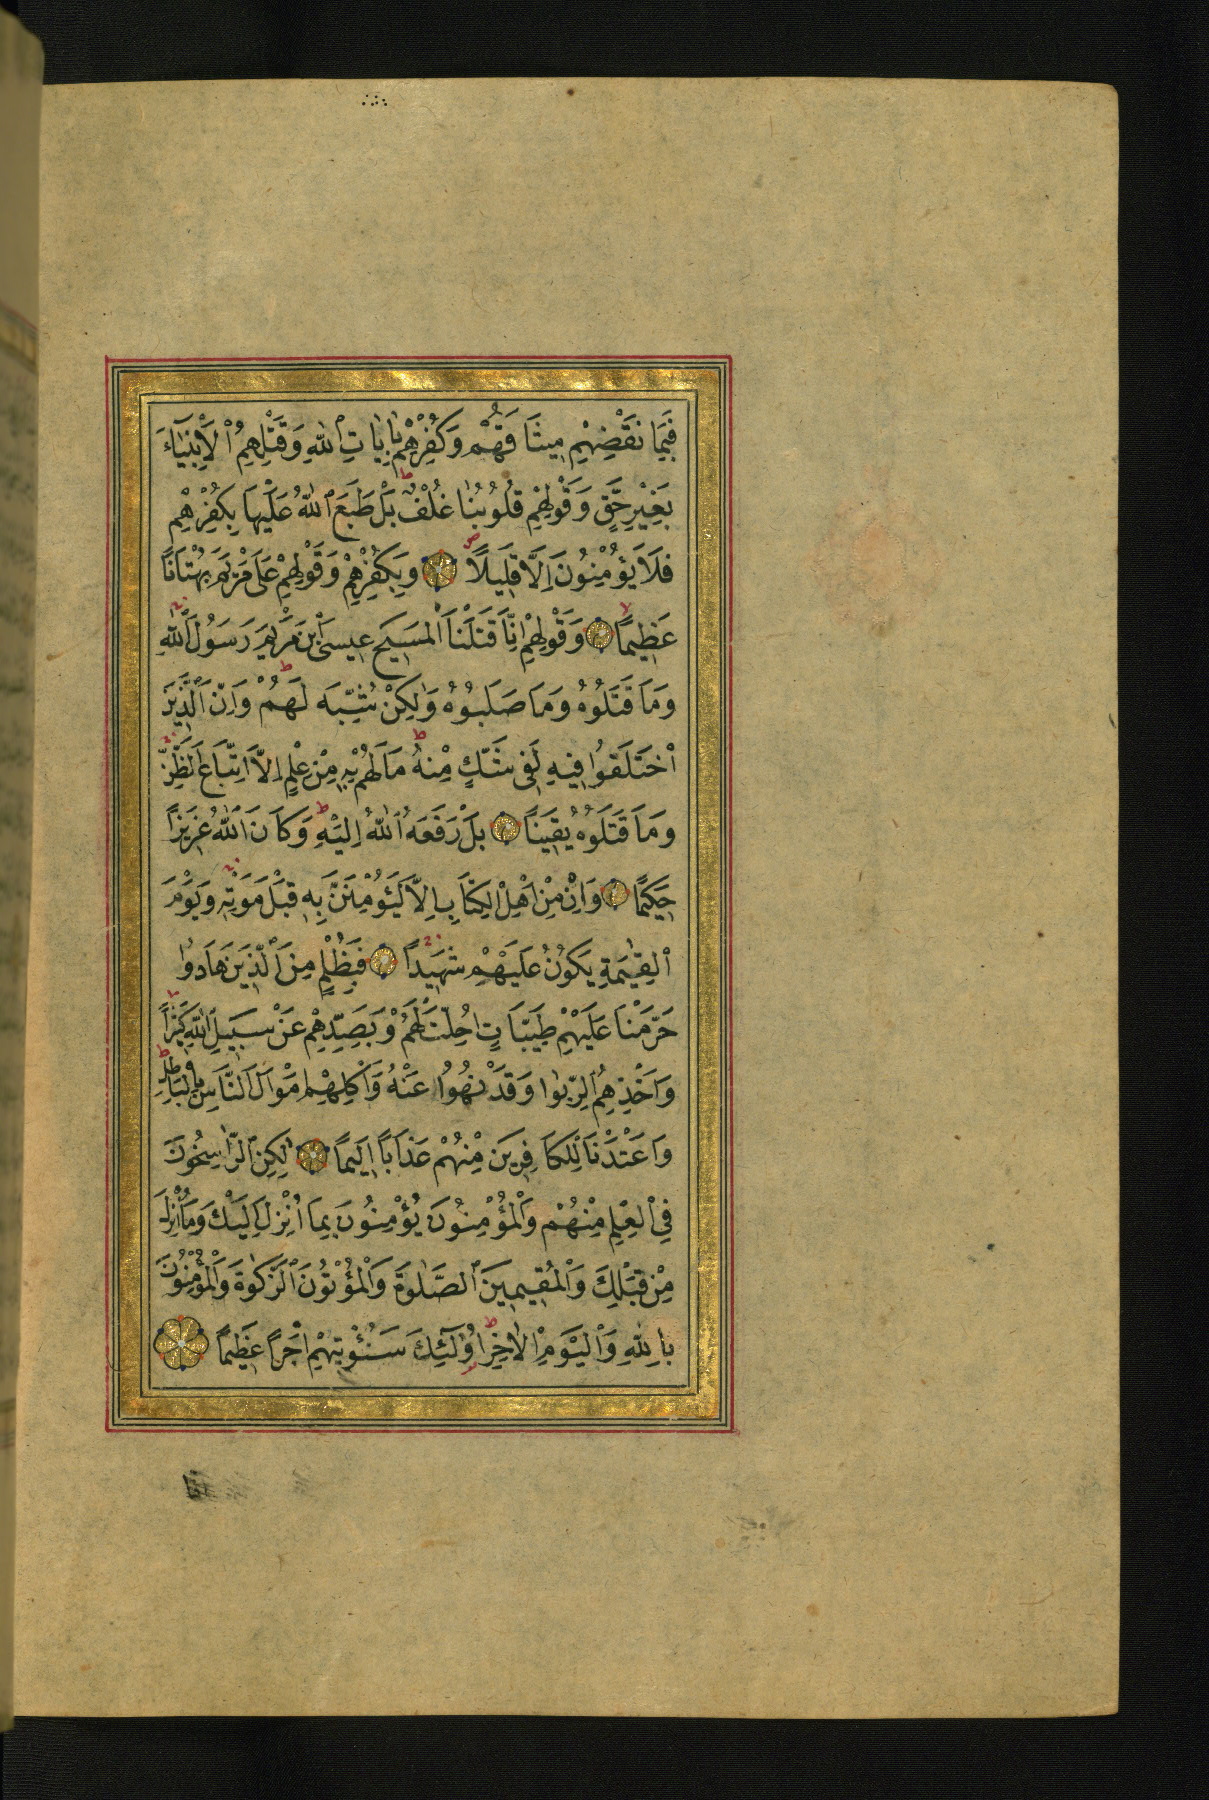 فَبِمَا نَقْضِهِمْ مِيثَاقَهُمْ وَكُفْرِهِمْ بِاٰيَاتِ اللّٰهِ وَقَتْلِهِمُ الْاَنْبِيَاۤءَ
بِغَيْرِ حَقٍّ وَقَوْلِهِمْ قُلُوبُنَا غُلْفٌ بَلْ طَبَعَ اللّٰهُ عَلَيْهَا بِكُفْرِهِمْ
فَلَا يُؤْمِنُونَ اِلَّا قَلِيلًا وَبِكُفْرِهِمْ وَقَوْلِهِمْ عَلٰى مَرْيَمَ بُهْتَانًا
عَظِيمًا وَقَوْلِهِمْ اِنَّا قَتَلْنَا الْمَسِيحَ عِيسَى ابْنَ مَرْيَمَ رَسُولَ اللّٰهِ
وَمَا قَتَلُوهُ وَمَا صَلَبُوهُ وَلٰكِنْ شُبِّهَ لَهُمْ وَاِنَّ الَّذِينَ
اخْتَلَفُوا فِيهِ لَفِى شَكٍّ مِنْهُ مَا لَهُمْ بِهِ مِنْ عِلْمٍ اِلَّا اتِّبَاعَ الظَّنِّ
وَمَا قَتَلُوهُ يَقِينًا بَلْ رَفَعَهُ اللّٰهُ اِلَيْهِ وَكَانَ اللّٰهُ عَزِيزًا
حَكِيمًا وَاِنْ مِنْ اَهْلِ الْكِتَابِ اِلَّا لَيُؤْمِنَنَّ بِهِ قَبْلَ مَوْتِهِ وَيَوْمَ
الْقِيٰمَةِ يَكُونُ عَلَيْهِمْ شَهِيدًا فَبِظُلْمٍ مِنَ الَّذِينَ هَادُوا
حَرَّمْنَا عَلَيْهِمْ طَيِّبَاتٍ اُحِلَّتْ لَهُمْ وَبِصَدِّهِمْ عَنْ سَبِيلِ اللّٰهِ كَثِيرًا
وَاَخْذِهِمُ الرِّبٰوا وَقَدْ نُهُوا عَنْهُ وَاَكْلِهِمْ اَمْوَالَ النَّاسِ بِالْبَاطِلِ
وَاَعْتَدْنَا لِلْكَافِرِينَ مِنْهُمْ عَذَابًا اَلِيمًا لٰكِنِ الرَّاسِخُونَ
فِى الْعِلْمِ مِنْهُمْ وَالْمُؤْمِنُونَ يُؤْمِنُونَ بِمَا اُنْزِلَ اِلَيْكَ وَمَا اُنْزِلَ
مِنْ قَبْلِكَ وَالْمُقِيمِينَ الصَّلٰوةَ وَالْمُؤْتُونَ الزَّكٰوةَ وَالْمُؤْمِنُونَ
بِاللّٰهِ وَالْيَوْمِ الْاٰخِرِ اُولٰۤئِكَ سَنُؤْتِيهِمْ اَجْرًا عَظِيمًا